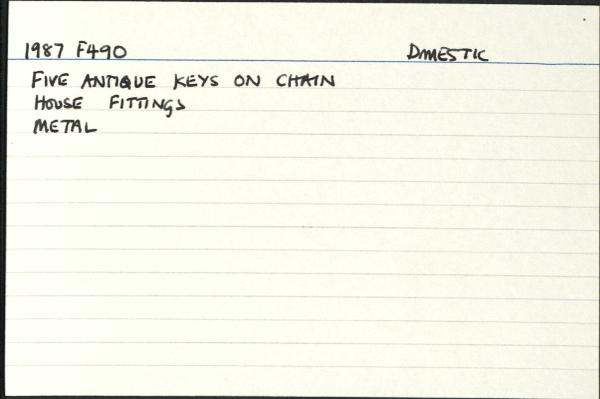 1987 F490 DOMESTIC
FIVE ANTIQUE KEYS ON CHAIN
HOUSE FITTINGS
METAL